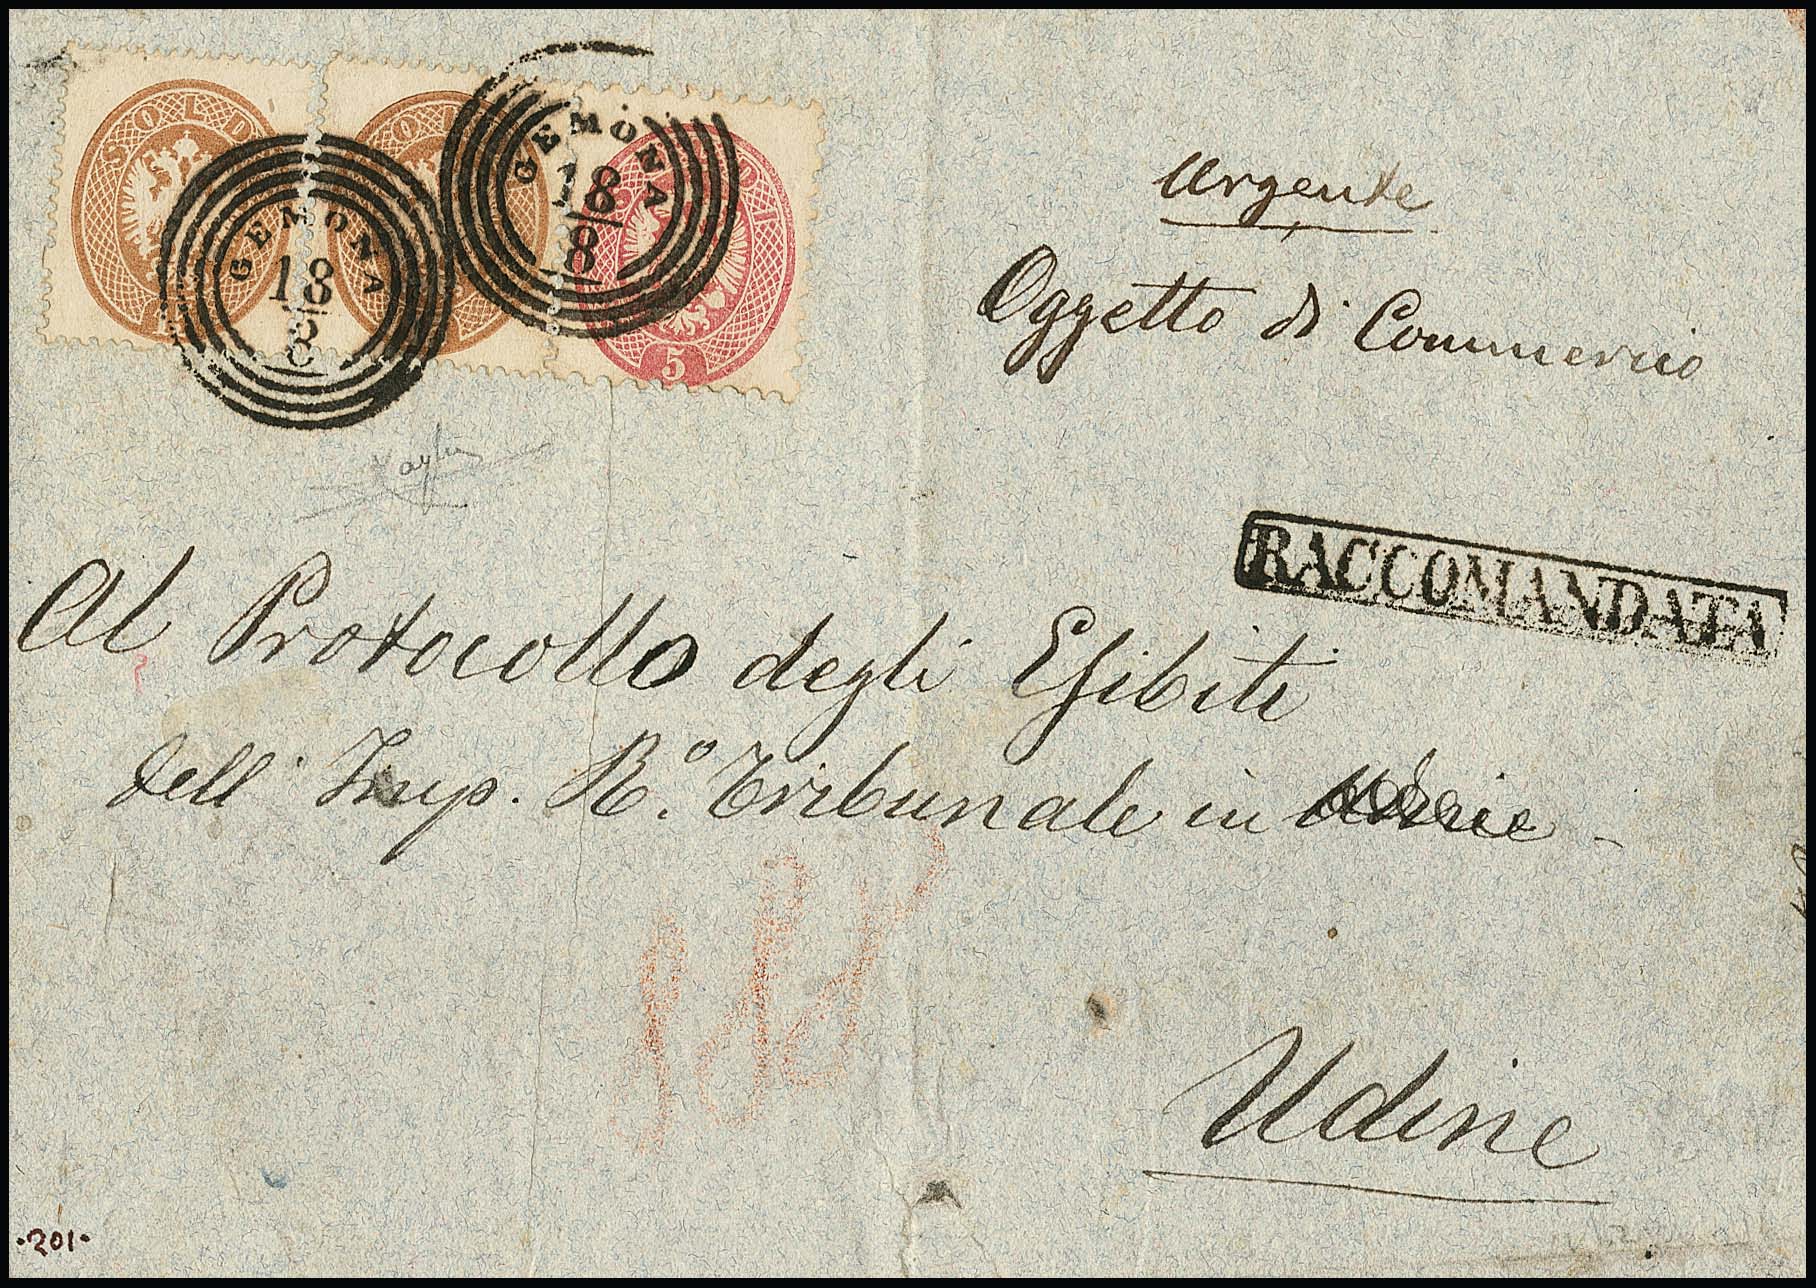 SOLDI
GEMONA
18
8
GEMONA
18
8
5
Urgente
Oggetto di Commercio
RACCOMANDATA
Al Protocollo degli Esibiti
dell' Imp. R.º Tribunale in Udine
Udine
·201·